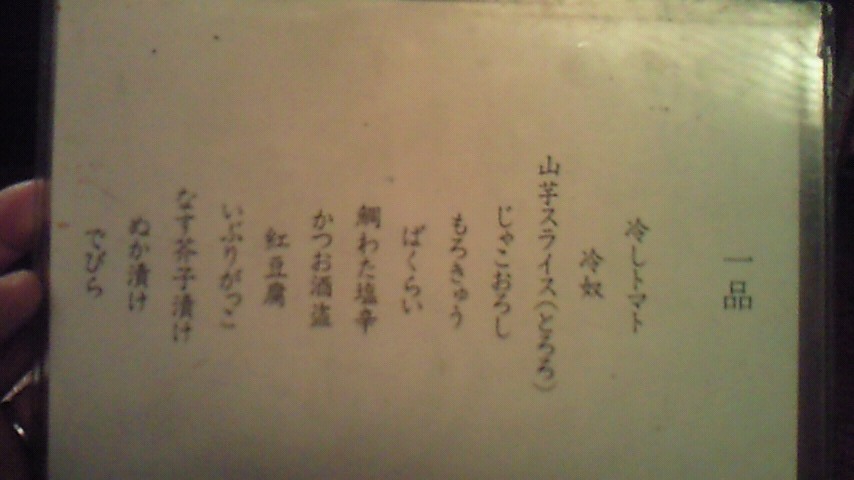 一品
冷しトマト
冷奴
山芋スライス(とろろ)
じゃこおろし
もろきゅう
ばくらい
鯛わた塩辛
かつお酒盗
紅豆腐
いぶりがっこ
なす芥子漬け
ぬか漬け
でびら